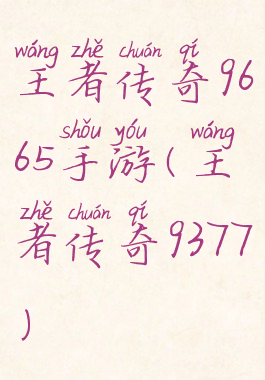 wáng zhě chuán qí
王者传奇96
shǒu yóu wáng
65手游(王
zhě chuán qí
者传奇9377
)